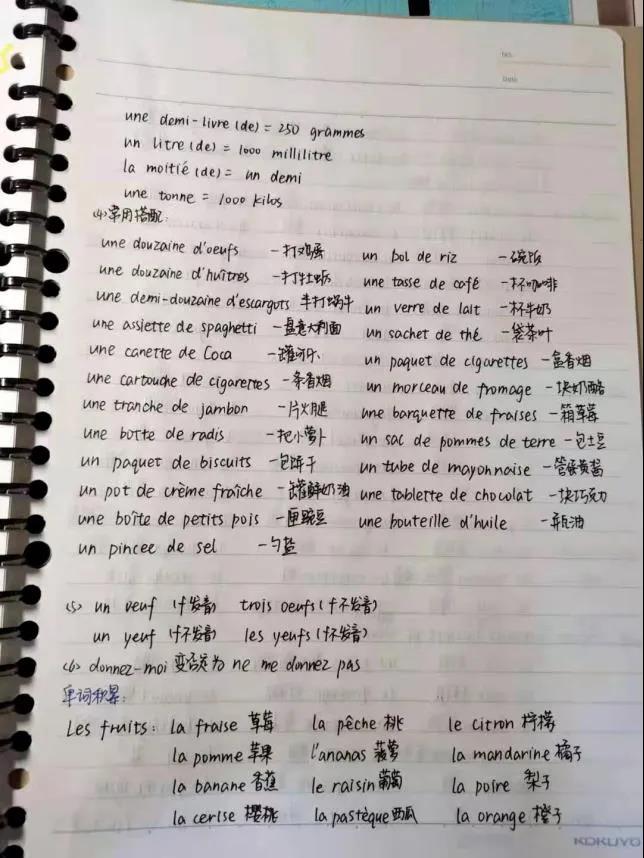 NO.
Date
une demi-livre (de) = 250 grammes
un litre (de) = 1000 millilitre
la moitié (de) = un demi
une tonne = 1000 kilos
(4) 常用搭配:
une douzaine d'oeufs 一打鸡蛋 un bol de riz 一碗饭
une douzaine d'huîtres 一打牡蛎 une tasse de café 一杯咖啡
une demi-douzaine d'escargots 半打蜗牛 un verre de lait 一杯牛奶
une assiette de spaghetti 一盘意大利面 un sachet de thé 一袋茶叶
une canette de Coca 一罐可乐 un paquet de cigarettes 一盒香烟
une cartouche de cigarettes 一条香烟 un morceau de fromage 一块奶酪
une tranche de jambon 一片火腿 une barquette de fraises 一箱草莓
une botte de radis 一把小萝卜 un sac de pommes de terre 一包土豆
un paquet de biscuits 一包饼干 un tube de mayonnaise 一管蛋黄酱
un pot de crème fraîche 一罐鲜奶油 une tablette de chocolat 一块巧克力
une boîte de petits pois 一匣豌豆 une bouteille d'huile 一瓶油
un pincee de sel 一勺盐
(5) un oeuf (f发音) trois oeufs (f不发音)
un yeuf (f不发音) les yeufs (f不发音)
(6) donnez-moi 变否定为 ne me donnez pas
单词积累:
Les fruits: la fraise 草莓 la pêche 桃 le citron 柠檬
la pomme 苹果 l'ananas 菠萝 la mandarine 橘子
la banane 香蕉 le raisin 葡萄 la poire 梨子
la cerise 樱桃 la pastèque 西瓜 la orange 橙子
KOKUYO